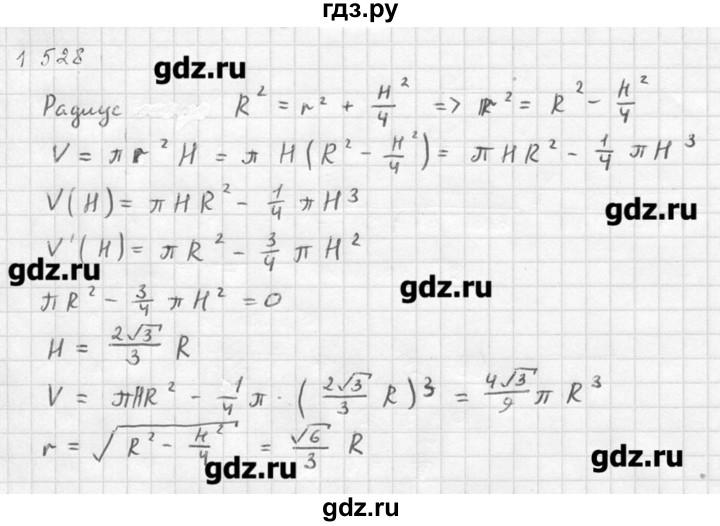 гдз.ру
1 528
gdz.ru
Радиус R² = r² + H²/4 => r² = R² - H²/4
V = π r² H = π H (R² - H²/4) = π H R² - 1/4 π H³
V(H) = π H R² - 1/4 π H³
gdz.ru
V'(H) = π R² - 3/4 π H²
gdz.ru
gdz.ru
π R² - 3/4 π H² = 0
H = 2√3/3 R
V = πHR² - 1/4 π · (2√3/3 R)³ = 4√3/9 π R³
r = √(R² - H²/4) = √6/3 R
gdz.ru
gdz.ru
gdz.ru